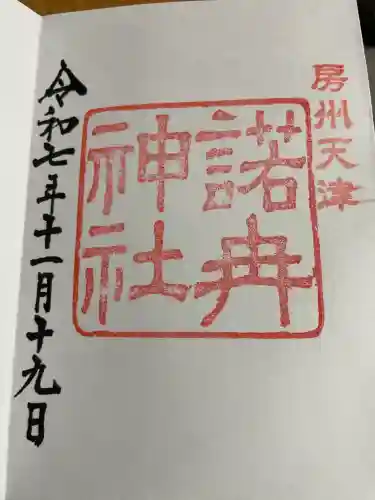 房州天津
諾冉
神社
令和七年十一月十九日